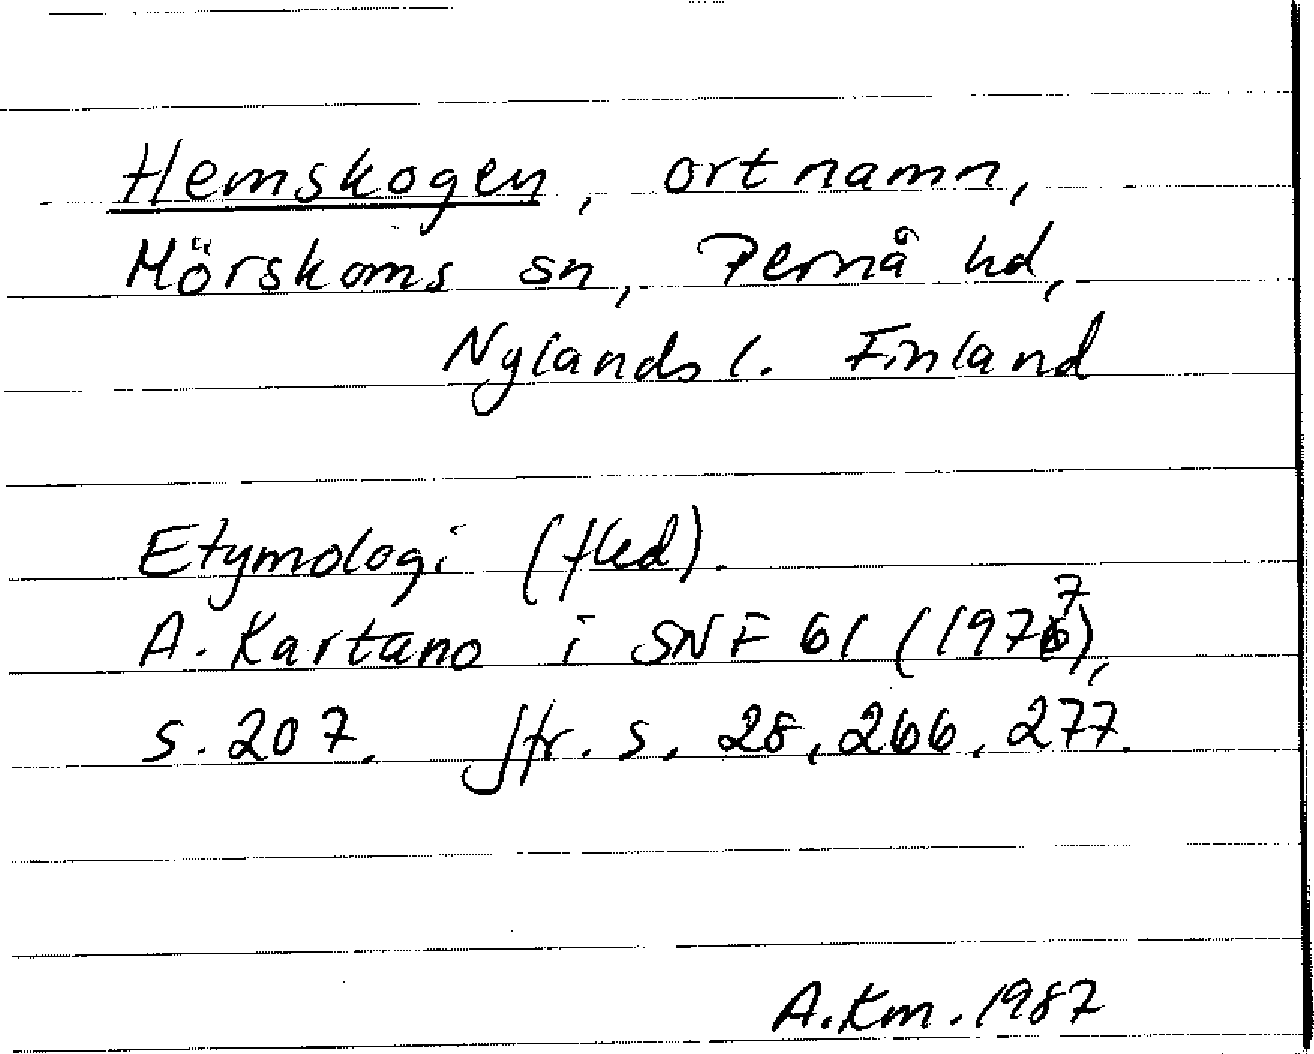 Hemskogen, ortnamn,
Mörskoms sn, Pernå hd,
Nylands l. Finland
Etymologi (fled).
A. Kartano i SNF 61 (1977),
s. 207. Jfr. s. 28, 266, 277.
A.Km. 1987